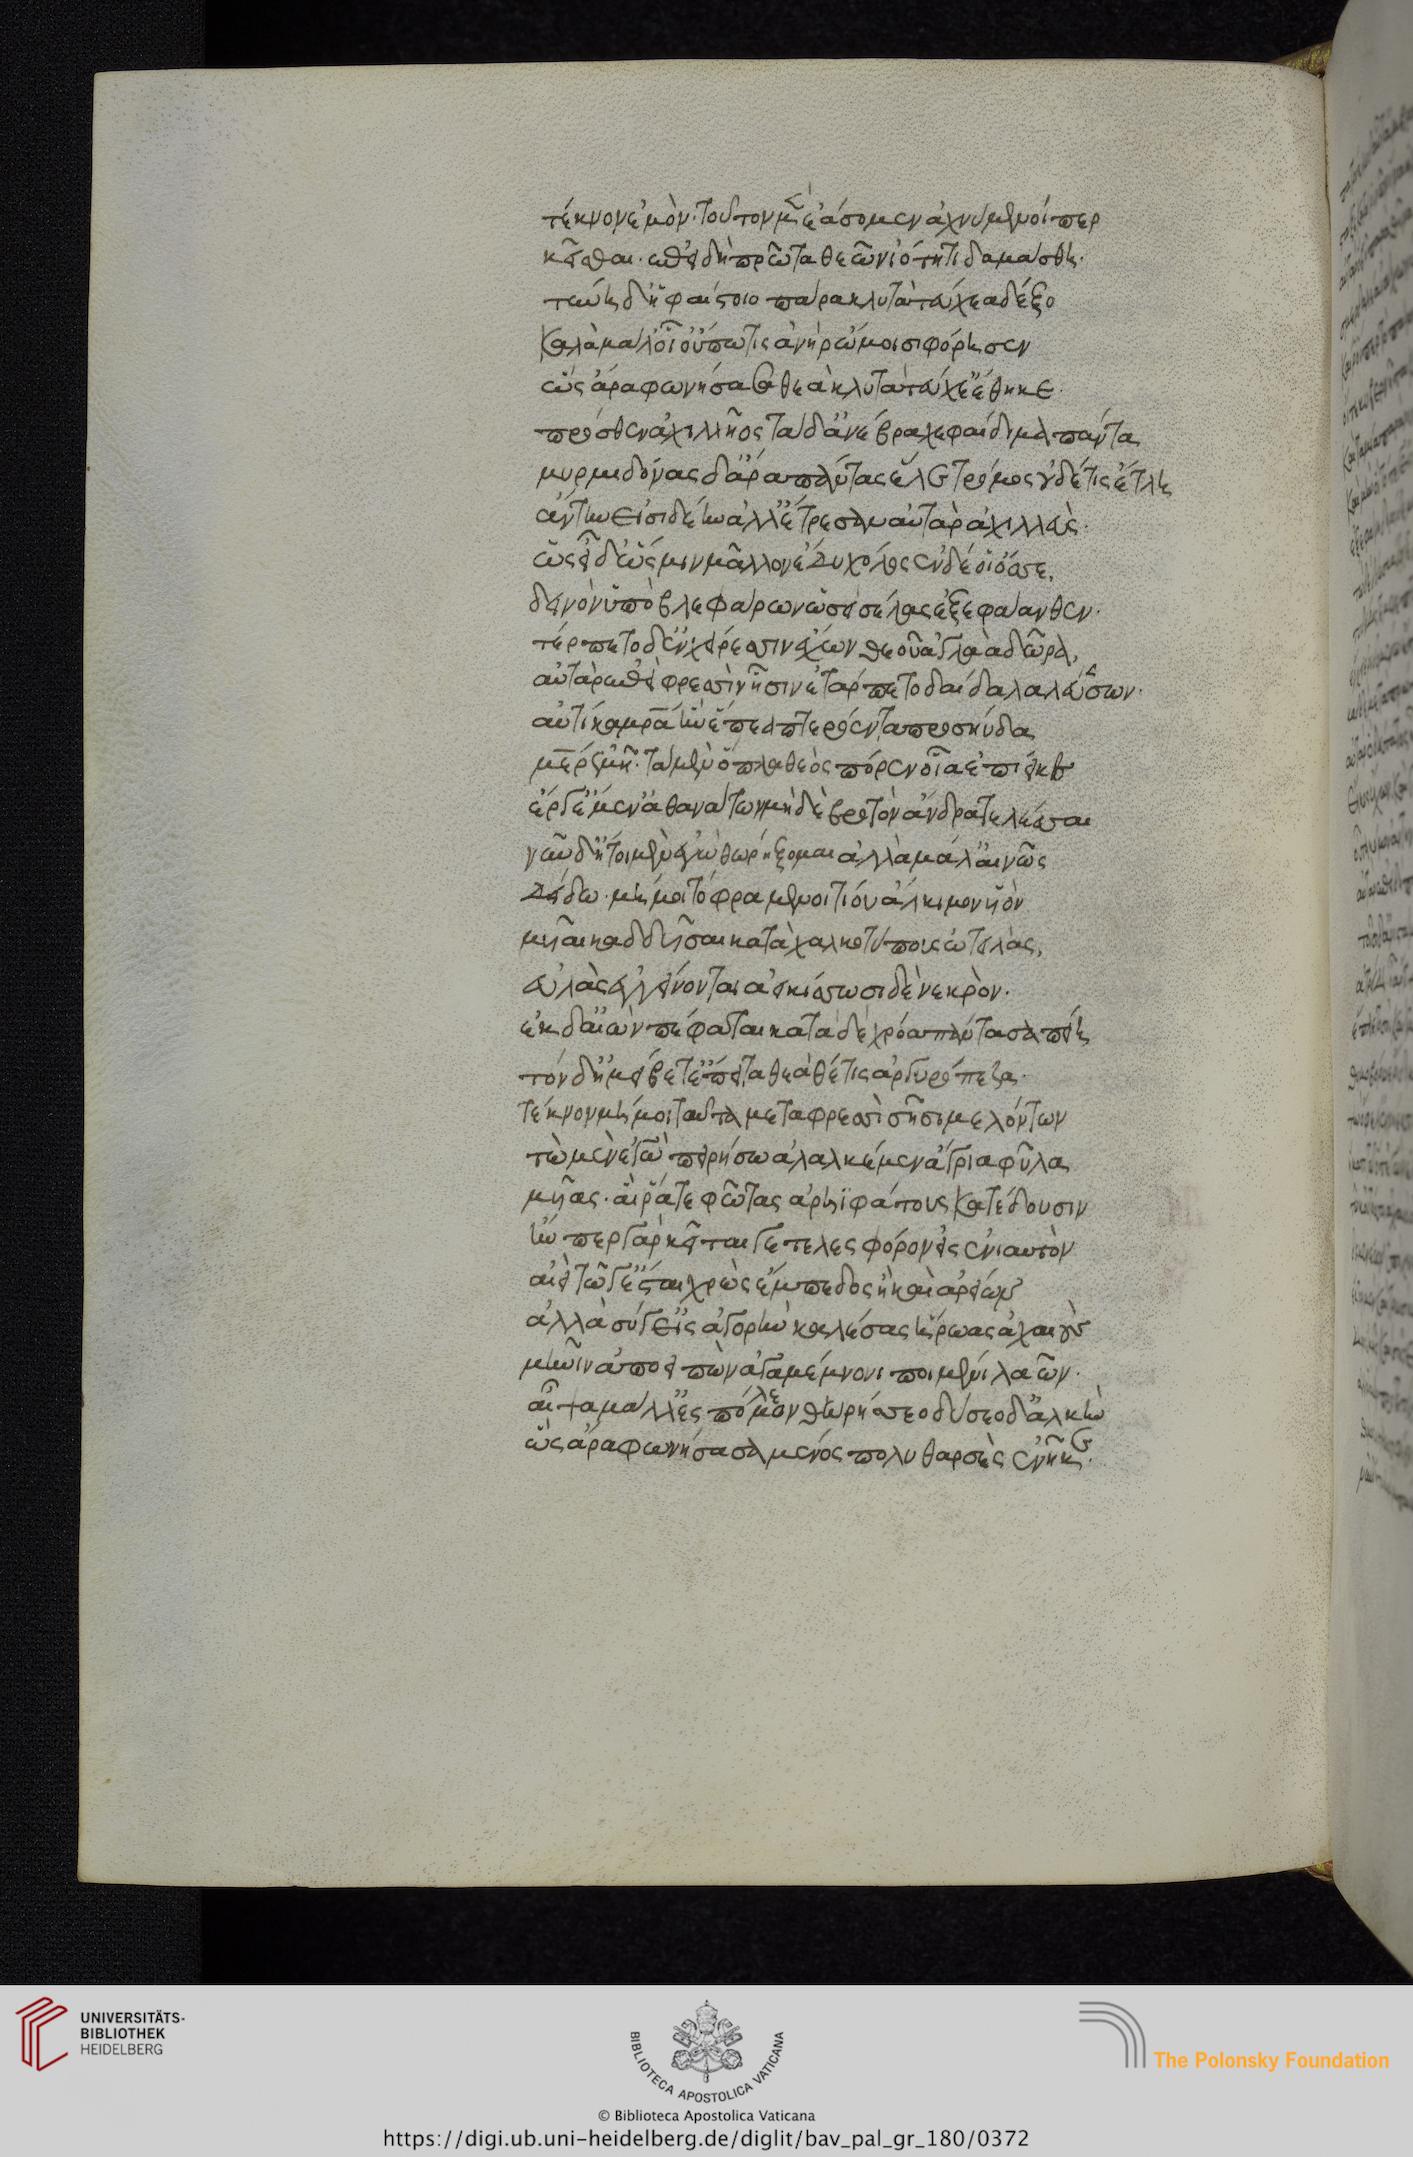 τέκνον ἐμὸν· τοῦτον μὲν ἐάσομεν ἀχνύμενοί περ
κεῖσθαι· ἐπεὶ δὴ πρῶτα θεῶν ἰότητι δαμάσθη·
τύνη δ' ἡφαίστοιο πάρα κλυτὰ τεύχεα δέξο
καλὰ μάλ' οἷ' οὔπω τις ἀνὴρ ὤμοισι φόρησεν
ὣς ἄρα φωνήσασα θεὰ κλυτὰ τεύχε' ἔθηκε·
πρόσθεν ἀχιλλῆος τὰ δ' ἀνέβραχε φαίδιμα πάντα
μυρμιδόνας δ' ἄρα πάντας ἕλε τρόμος οὐδέ τις ἔτλη
ἄντην εἰσιδέειν ἀλλ' ἔτρεσαν αὐτὰρ ἀχιλλεὺς·
ὡς εἶδ' ὥς μιν μᾶλλον ἔδυ χόλος ἐν δέ οἱ ὄσσε,
δεινὸν ὑπὸ βλεφάρων ὡσεὶ σέλας ἐξεφάανθεν·
τέρπετο δ' ἐν χείρεσσιν ἔχων θεοῦ ἀγλαὰ δῶρα,
αὐτὰρ ἐπεὶ φρεσὶν ἧσιν ἐτάρπετο δαίδαλα λεύσσων·
αὐτίκα μητέρα ἣν ἔπεα πτερόεντα προσηύδα
μῆτερ ἐμὴ· τὰ μὲν ὅπλα θεὸς πόρεν οἷα ἐπιεικὲς
ἔργ' ἔμεν ἀθανάτων μὴ δὲ βροτὸν ἄνδρα τελέσσαι
νῦν δ' ἤτοι μὲν ἐγὼ θωρήξομαι ἀλλὰ μάλ' αἰνῶς
δείδω· μή μοι τόφρα μενοιτίου ἄλκιμον υἱὸν
μυῖαι καδδῦσαι κατὰ χαλκοτύπους ὠτειλὰς,
εὐλὰς ἐγγείνονται ἀεικίσσωσι δὲ νεκρὸν·
ἐκ δ' αἰὼν πέφαται κατὰ δὲ χρόα πάντα σαπείη
τὸν δ' ἠμείβετ' ἔπειτα θεὰ θέτις ἀργυρόπεζα·
τέκνον μή μοι ταῦτα μετὰ φρεσὶ σῆσι μελόντων
τῶ μὲν ἐγὼ πειρήσω ἀλαλκέμεν ἄγρια φῦλα
μυίας· αἵ ῥά τε φῶτας ἀρηϊφάτους κατέδουσιν
ἤν περ γὰρ κεῖται γε τελεσφόρον εἰς ἐνιαυτὸν
αἰεὶ τῶ γ' ἔσται χρὼς ἔμπεδος ἢ καὶ ἀρείων
ἀλλὰ σύ γ' εἰς ἀγορὴν καλέσας ἥρωας ἀχαιοὺς
μῆνιν ἀποειπὼν ἀγαμέμνονι ποιμένι λαῶν·
αἶψα μάλ' ἐς πόλεμον θωρήσσεο δύσεο δ' ἀλκὴν
ὣς ἄρα φωνήσασα μένος πολυθαρσὲς ἐνῆκε·
UNIVERSITÄTS-
BIBLIOTHEK
HEIDELBERG
BIBLIOTECA APOSTOLICA VATICANA
The Polonsky Foundation
© Biblioteca Apostolica Vaticana
https://digi.ub.uni-heidelberg.de/diglit/bav_pal_gr_180/0372